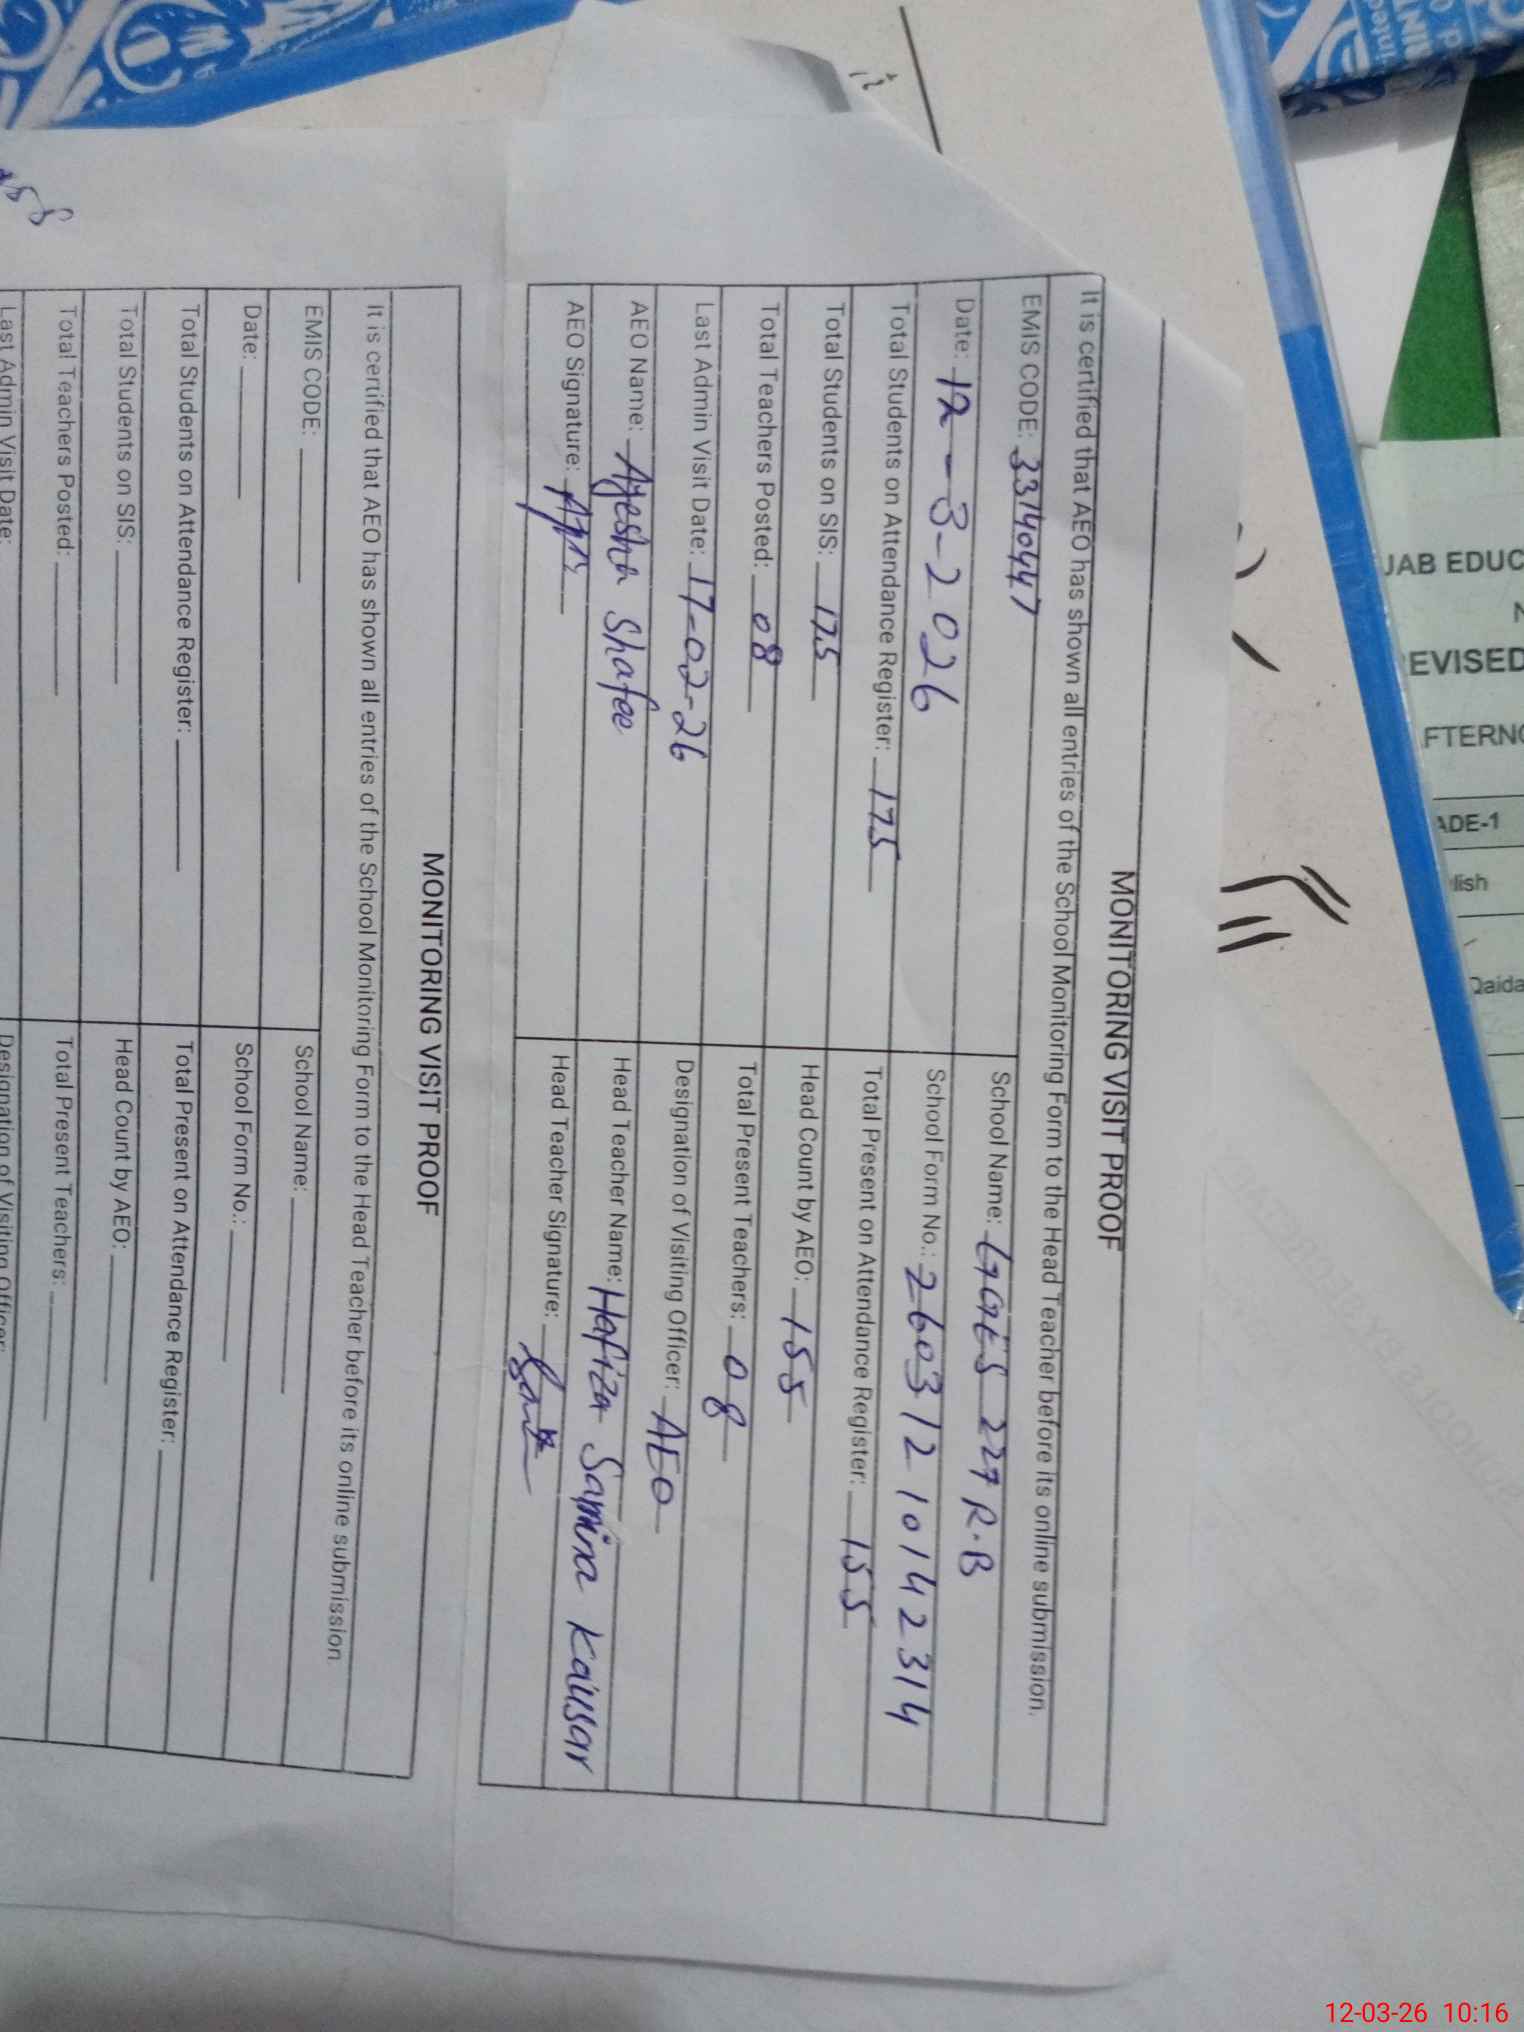 MONITORING VISIT PROOF
It is certified that AEO has shown all entries of the School Monitoring Form to the Head Teacher before its online submission.
EMIS CODE: 33140447 School Name: GGES 227 R.B
Date: 12-3-2026 School Form No.: 26031210142314
Total Students on Attendance Register: 175 Total Present on Attendance Register: 155
Total Students on SIS: 175 Head Count by AEO: 155
Total Teachers Posted: 08 Total Present Teachers: 08
Last Admin Visit Date: 17-02-26 Designation of Visiting Officer: AEO
AEO Name: Ayesha Shafee Head Teacher Name: Hafiza Samina Kausar
AEO Signature: Head Teacher Signature:
MONITORING VISIT PROOF
It is certified that AEO has shown all entries of the School Monitoring Form to the Head Teacher before its online submission.
EMIS CODE: School Name:
Date: School Form No.:
Total Students on Attendance Register: Total Present on Attendance Register:
Total Students on SIS: Head Count by AEO:
Total Teachers Posted: Total Present Teachers:
Last Admin Visit Date: Designation of Visiting Officer:
JAB EDUC
EVISED
FTERNO
ADE-1
lish
Qaida
12-03-26 10:16